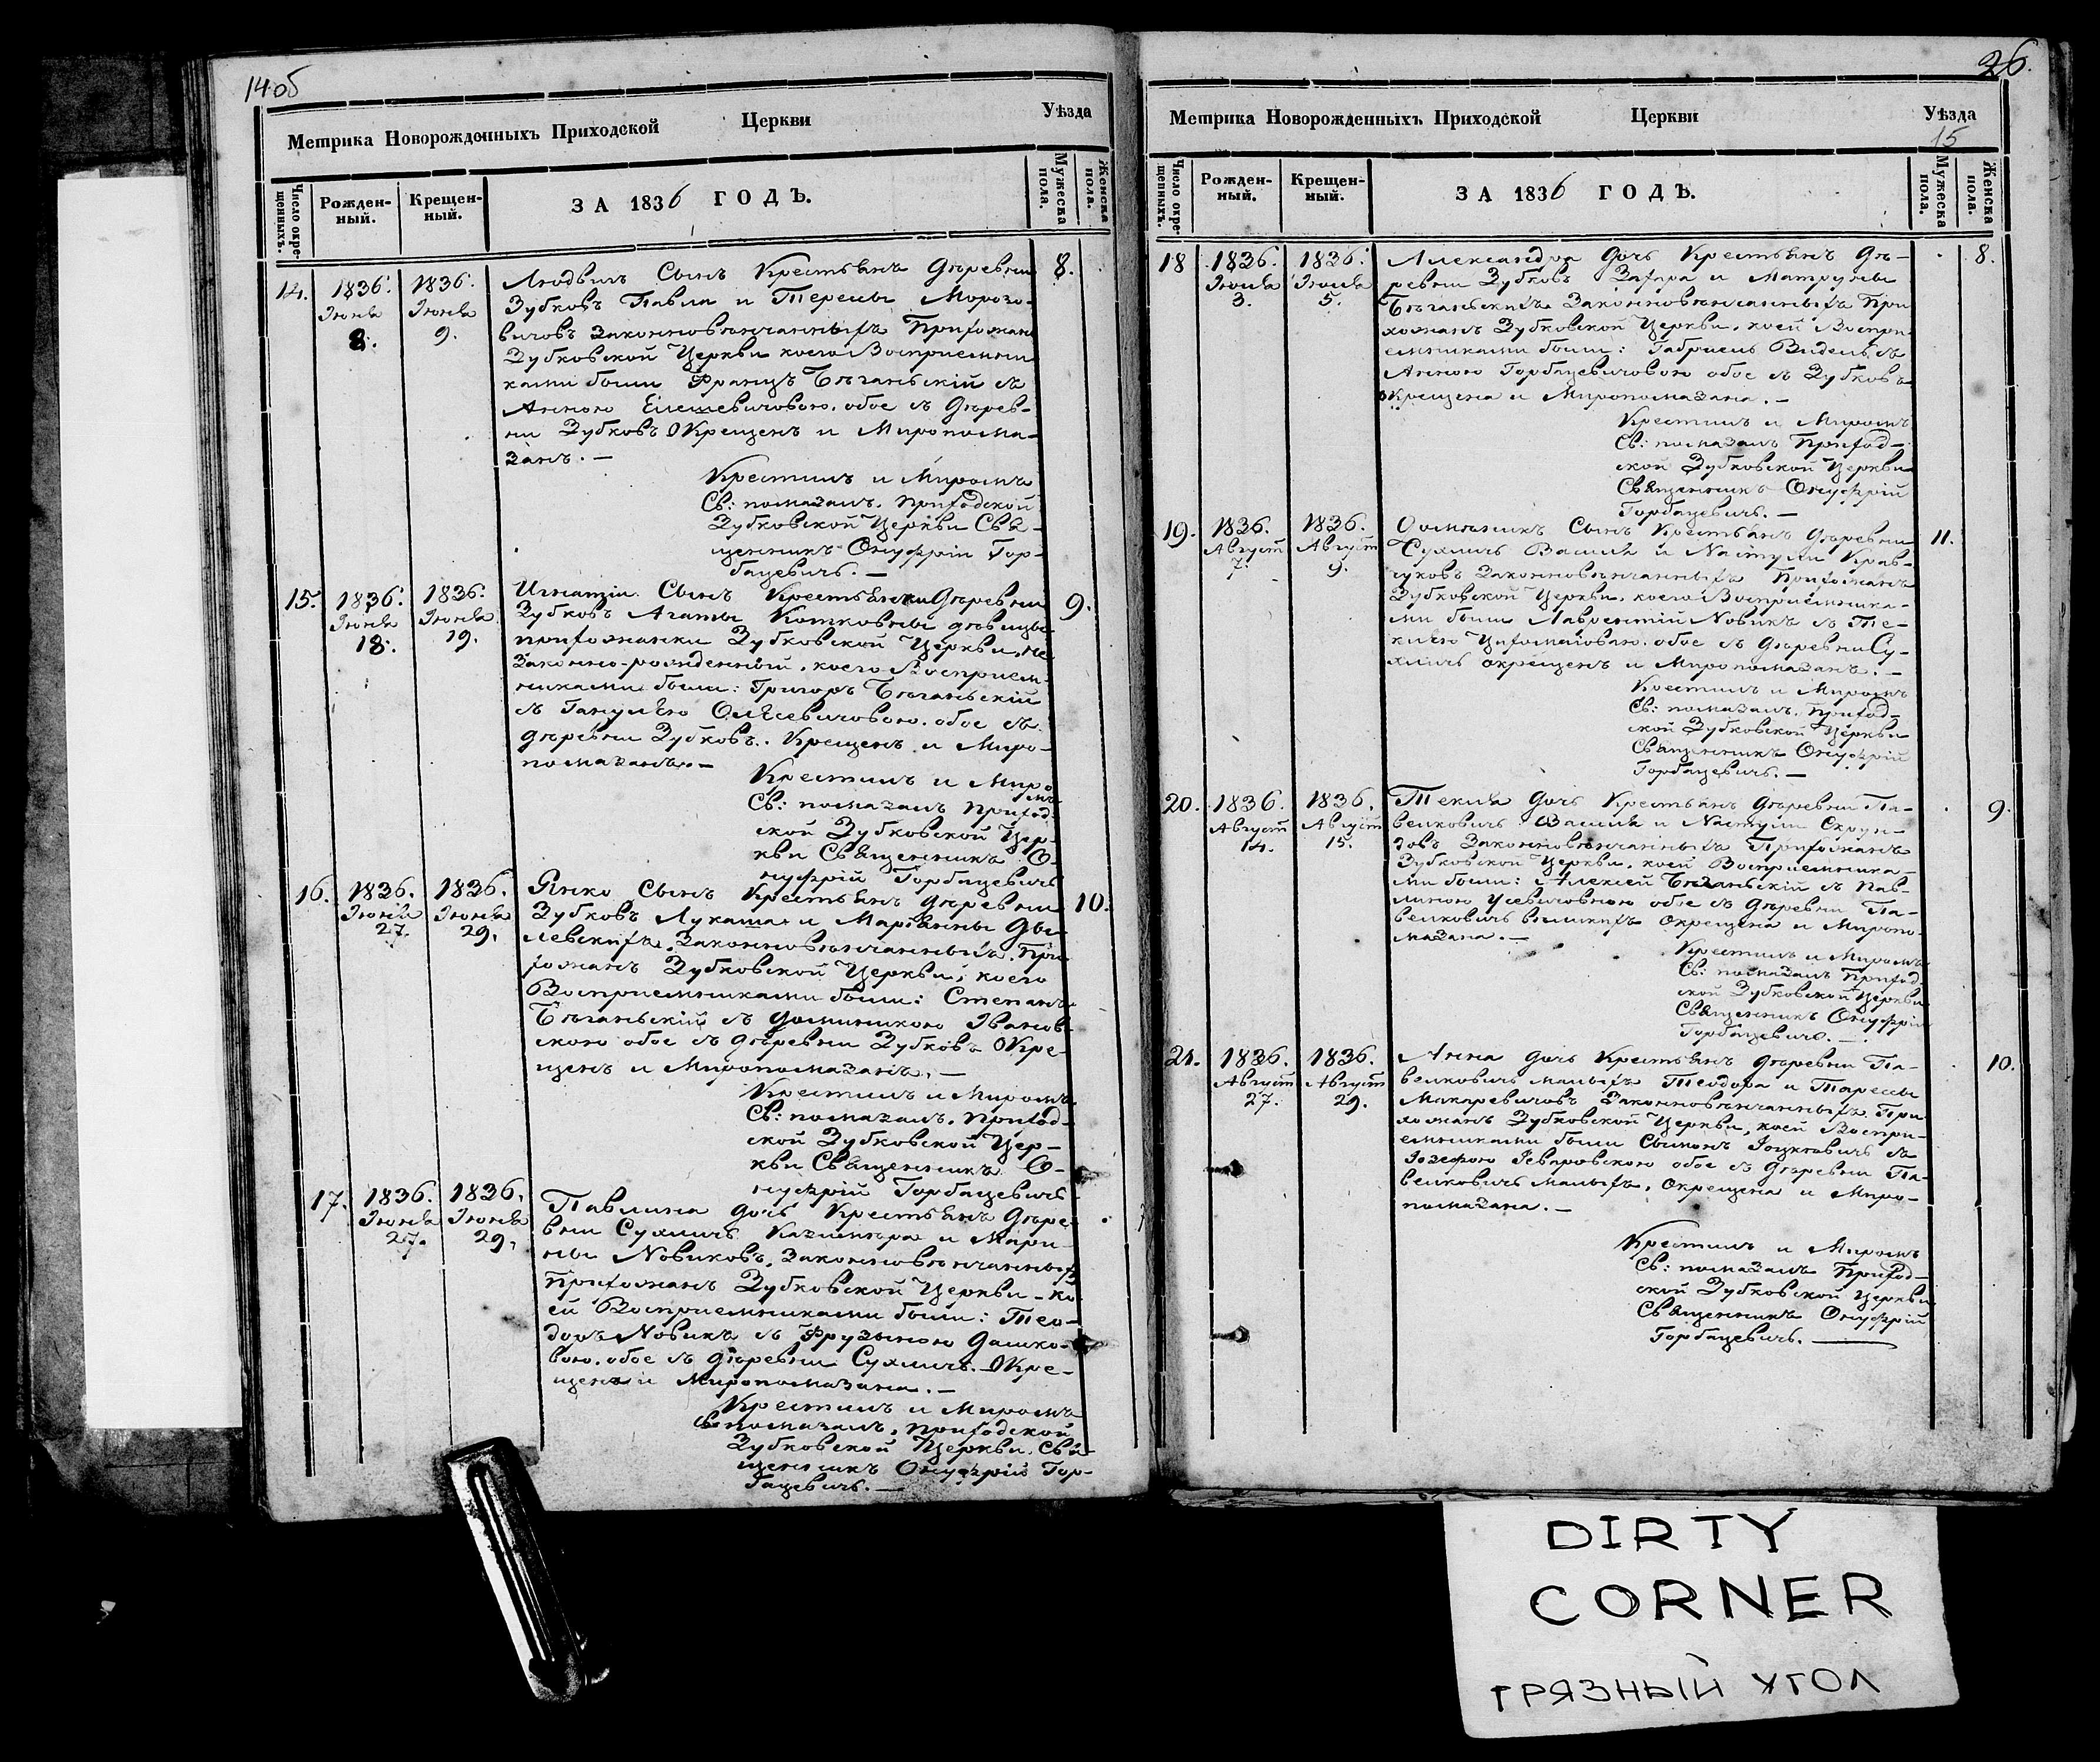 14 об
Метрика Новорожденныхъ Приходской Церкви Уѣзда
Число окрещенныхъ. Рожденный. Крещенный. ЗА 1836 ГОДЪ. Мужеска пола. Женска пола.
14. 1836. Іюня 8. 1836. Іюня 9. 8.
Людвигъ Сынъ Крестьянъ Дѣревни
Зубковъ Павла и Тересы Морозо-
вичовъ Законновѣнчанныхъ Прихожанъ
Зубковской Церкви коего Восприемни
ками были Францъ Бѣганьскій съ
Анною обое съ Дѣрев-
ни Зубковъ Окрещенъ и Миропома-
занъ. —
Крестилъ и Миромъ
Св: помазалъ. Приходской
Зубковской Церкви Свя-
щенникъ Онуфрій Гор-
бацевичъ. —
15. 1836. Іюня 18. 1836. Іюня 19. 9.
Игнатій Сынъ Крестьянки Дѣревни
Зубковъ Агаты Котковны дѣвицы
прихожанки Зубковской Церкви, не
Законно-рожденный, коего Восприем-
никами были: Григоръ Бѣганьскій
съ Ганулею обое съ
дѣревни Зубковъ. Крещенъ и Миро-
помазанъ. —
Крестилъ и Миро
мъ
Св: помазалъ Приход-
ской Зубковской Цер-
кви Священникъ О-
нуфрій Горбацевичъ
16. 1836. Іюня 27. 1836. Іюня 29. 10.
Янко Сынъ Крестьянъ Дѣревни
Зубковъ Лукаша и Марьянны Ды-
левскихъ, Законновѣнчанныхъ При
хожанъ Зубковской Церкви, коего
Восприемниками были: Степанъ
Бѣганьскій съ Доминикою Іванов-
скою обое съ дѣревни Зубковъ Окре-
щенъ и Миропомазанъ. —
Крестилъ и Миромъ
Св: помазалъ. Приход-
ской Зубковской Цер-
кви Священникъ О-
нуфрій Горбацевичъ
17. 1836. Іюня 27. 1836. Іюня 29.
Павлина дочь Крестьянъ Дѣре-
вни Сухмичь Казимѣра и Мари-
ны Новиковъ, Законновѣнчанныхъ
Прихожанъ Зубковской Церкви – ко
ей Восприемниками были: Тео-
доръ Новикъ съ Фрузыною Дашко-
вою. обое съ дѣревни Сухмичь. Окре-
щена и Миропомазана. —
Крестилъ и Миромъ
Св: помазалъ, Приходской
Зубковской Церкви. Свя-
щенникъ Онуфрій Гор-
бацевичъ. —
26.
Метрика Новорожденныхъ Приходской Церкви Уѣзда
15
Число окрещенныхъ. Рожденный. Крещенный. ЗА 1836 ГОДЪ. Мужеска пола. Женска пола.
18 1836. Іюля 3. 1836. Іюля 5. 8.
Александра дочь Крестьянъ Дѣ-
ревни Зубковъ Захара и Матруны
Бѣганьскихъ Законновѣнчанныхъ При
хожанъ Зубковской Церкви, коей Воспри-
емниками были: Габриель съ
Анною Горбацевичовою обое съ Зубковъ
Окрещена и Миропомазана. —
Крестилъ и Миромъ
Св: помазалъ Приход-
ской Зубковской Церкви
Священникъ Онуфрій
Горбацевичъ. —
19. 1836. Август 7. 1836. Август 9. 11.
Доминикъ Сынъ Крестьянъ Дѣревни
Сухмичь Василя и Настули Крав-
чуковъ Законновѣнчанныхъ Прихожанъ
Зубковской Церкви, коего Восприемника-
ми были Лаврентій Новикъ съ Те-
клею обое съ дѣревни Су-
хмичь окрещенъ и Миропомазанъ. —
Крестилъ и Миромъ
Св: помазалъ. Приход-
ской Зубковской Церкви
Священникъ Онуфрій
Горбацевичъ. —
20. 1836. Август 14. 1836. Август 15. 9.
Текля дочь Крестьянъ дѣревни Па-
велковичь Василя и Настули Скрун-
довъ Законновѣнчанныхъ Прихожанъ
Зубковской Церкви, коей Восприемника-
ми были: Алексей Бѣганьскій съ Пав-
линою обое съ дѣревни Па-
велковичь великихъ Окрещена и Миропо-
мазана. —
Крестилъ и Миромъ
Св: помазалъ Приход-
ской Зубковской Церкви
Священникъ Онуфрій
Горбацевичъ. —
21. 1836. Август 27. 1836. Август 29. 10.
Анна дочь Крестьянъ дѣревни Па-
велковичь малыхъ Теодора и Таресы
Макаревичовъ Законновѣнчанныхъ При
хожанъ Зубковской Церкви, коей Воспри-
емниками были Сымонъ съ
Іозефою обое съ дѣревни Па-
велковичь малыхъ, Окрещена и Миро-
помазана. —
Крестилъ и Миромъ
Св: помазалъ Приход-
ской Зубковской Церкви
Священникъ Онуфрій
Горбацевичъ. —
DIRTY
CORNER
ГРЯЗНЫЙ УГОЛ